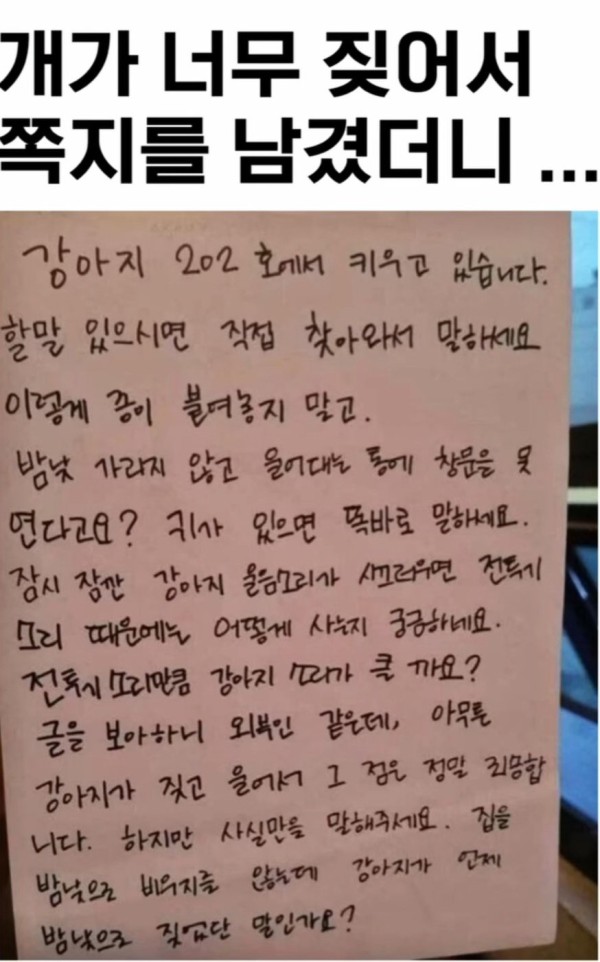 개가 너무 짖어서
쪽지를 남겼더니 ...
강아지 202 호에서 키우고 있습니다.
할말 있으시면 직접 찾아와서 말하세요
이렇게 종이 불여놓지 말고.
밤낮 가리지 않고 울어대는 통에 창문을 못
연다고요? 귀가 있으면 똑바로 말하세요.
잠시 잠깐 강아지 울음소리가 시끄러우면 전투기
소리 때문에는 어떻게 사는지 궁금하네요.
전투기 소리만큼 강아지 소리가 클 까요?
글을 보아하니 외부인 같은데, 아무튼
강아지가 짖고 울어서 그 점은 정말 죄송합
니다. 하지만 사실만을 말해주세요. 집을
밤낮으로 비우지를 않는데 강아지가 언제
밤낮으로 짖었단 말인가요?